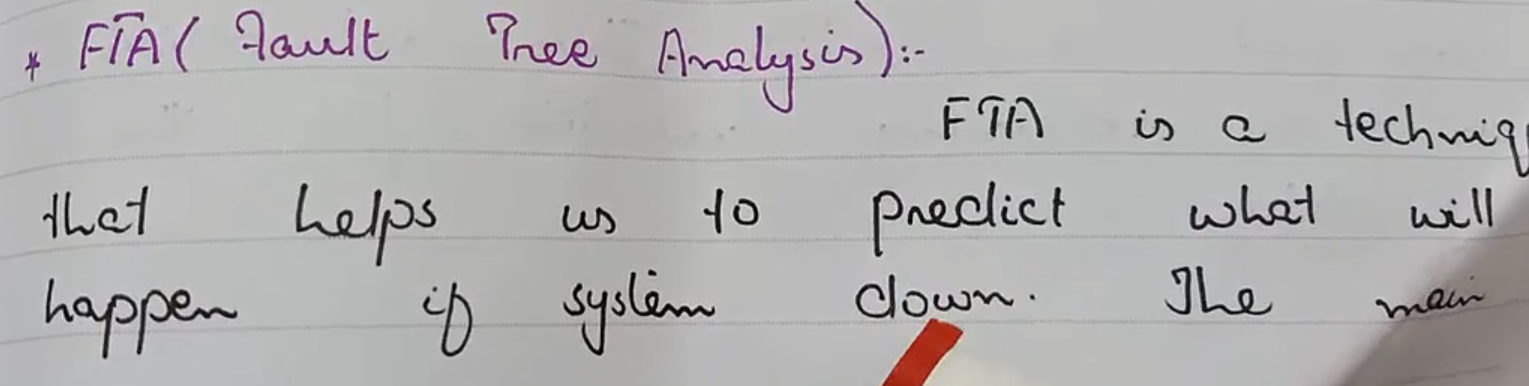 * FTA ( Fault Tree Analysis):-
FTA is a techniq
that helps us to predict what will
happen if system down. The main